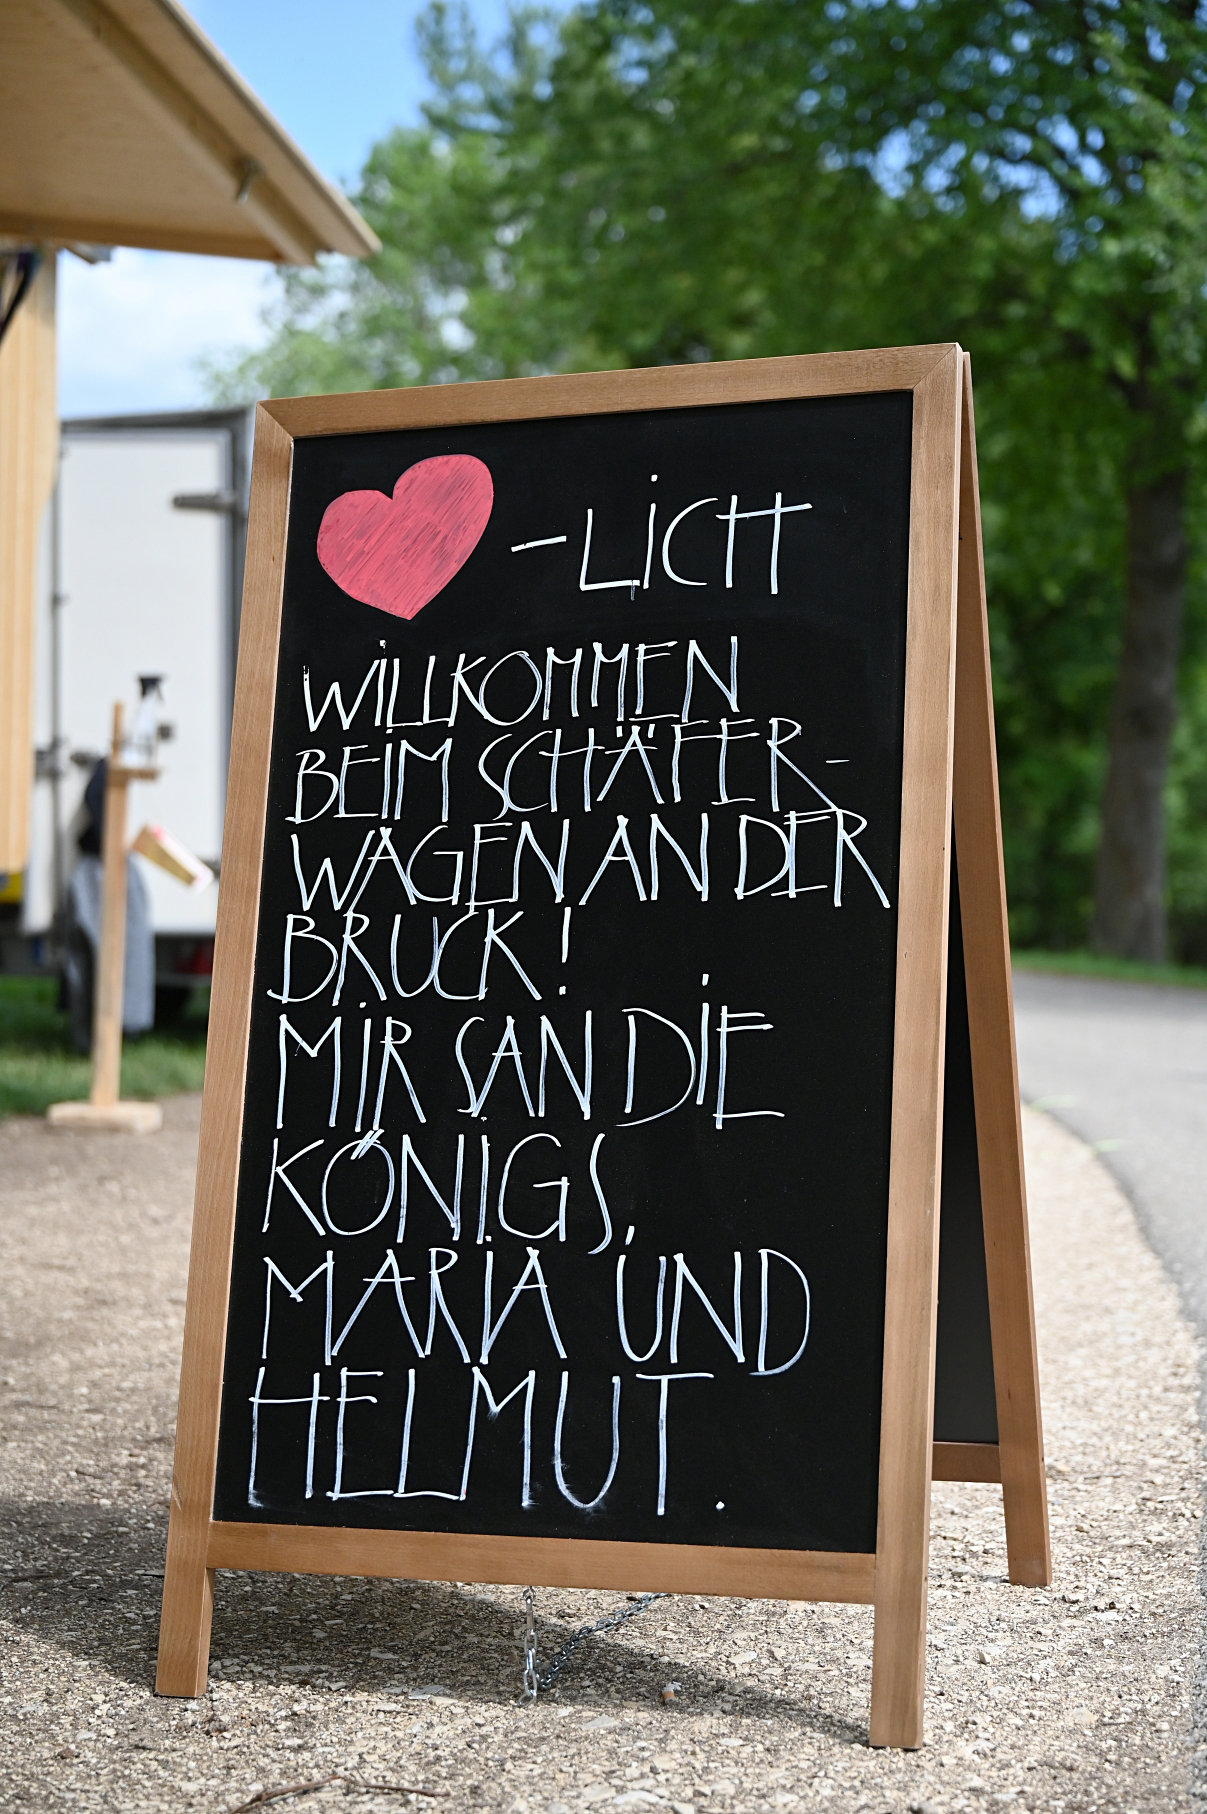 -LICHT
WILLKOMMEN
BEIM SCHÄFER-
WAGEN AN DER
BRUCK!
MIR SAN DIE
KÖNIGS,
MARIA UND
HELMUT.